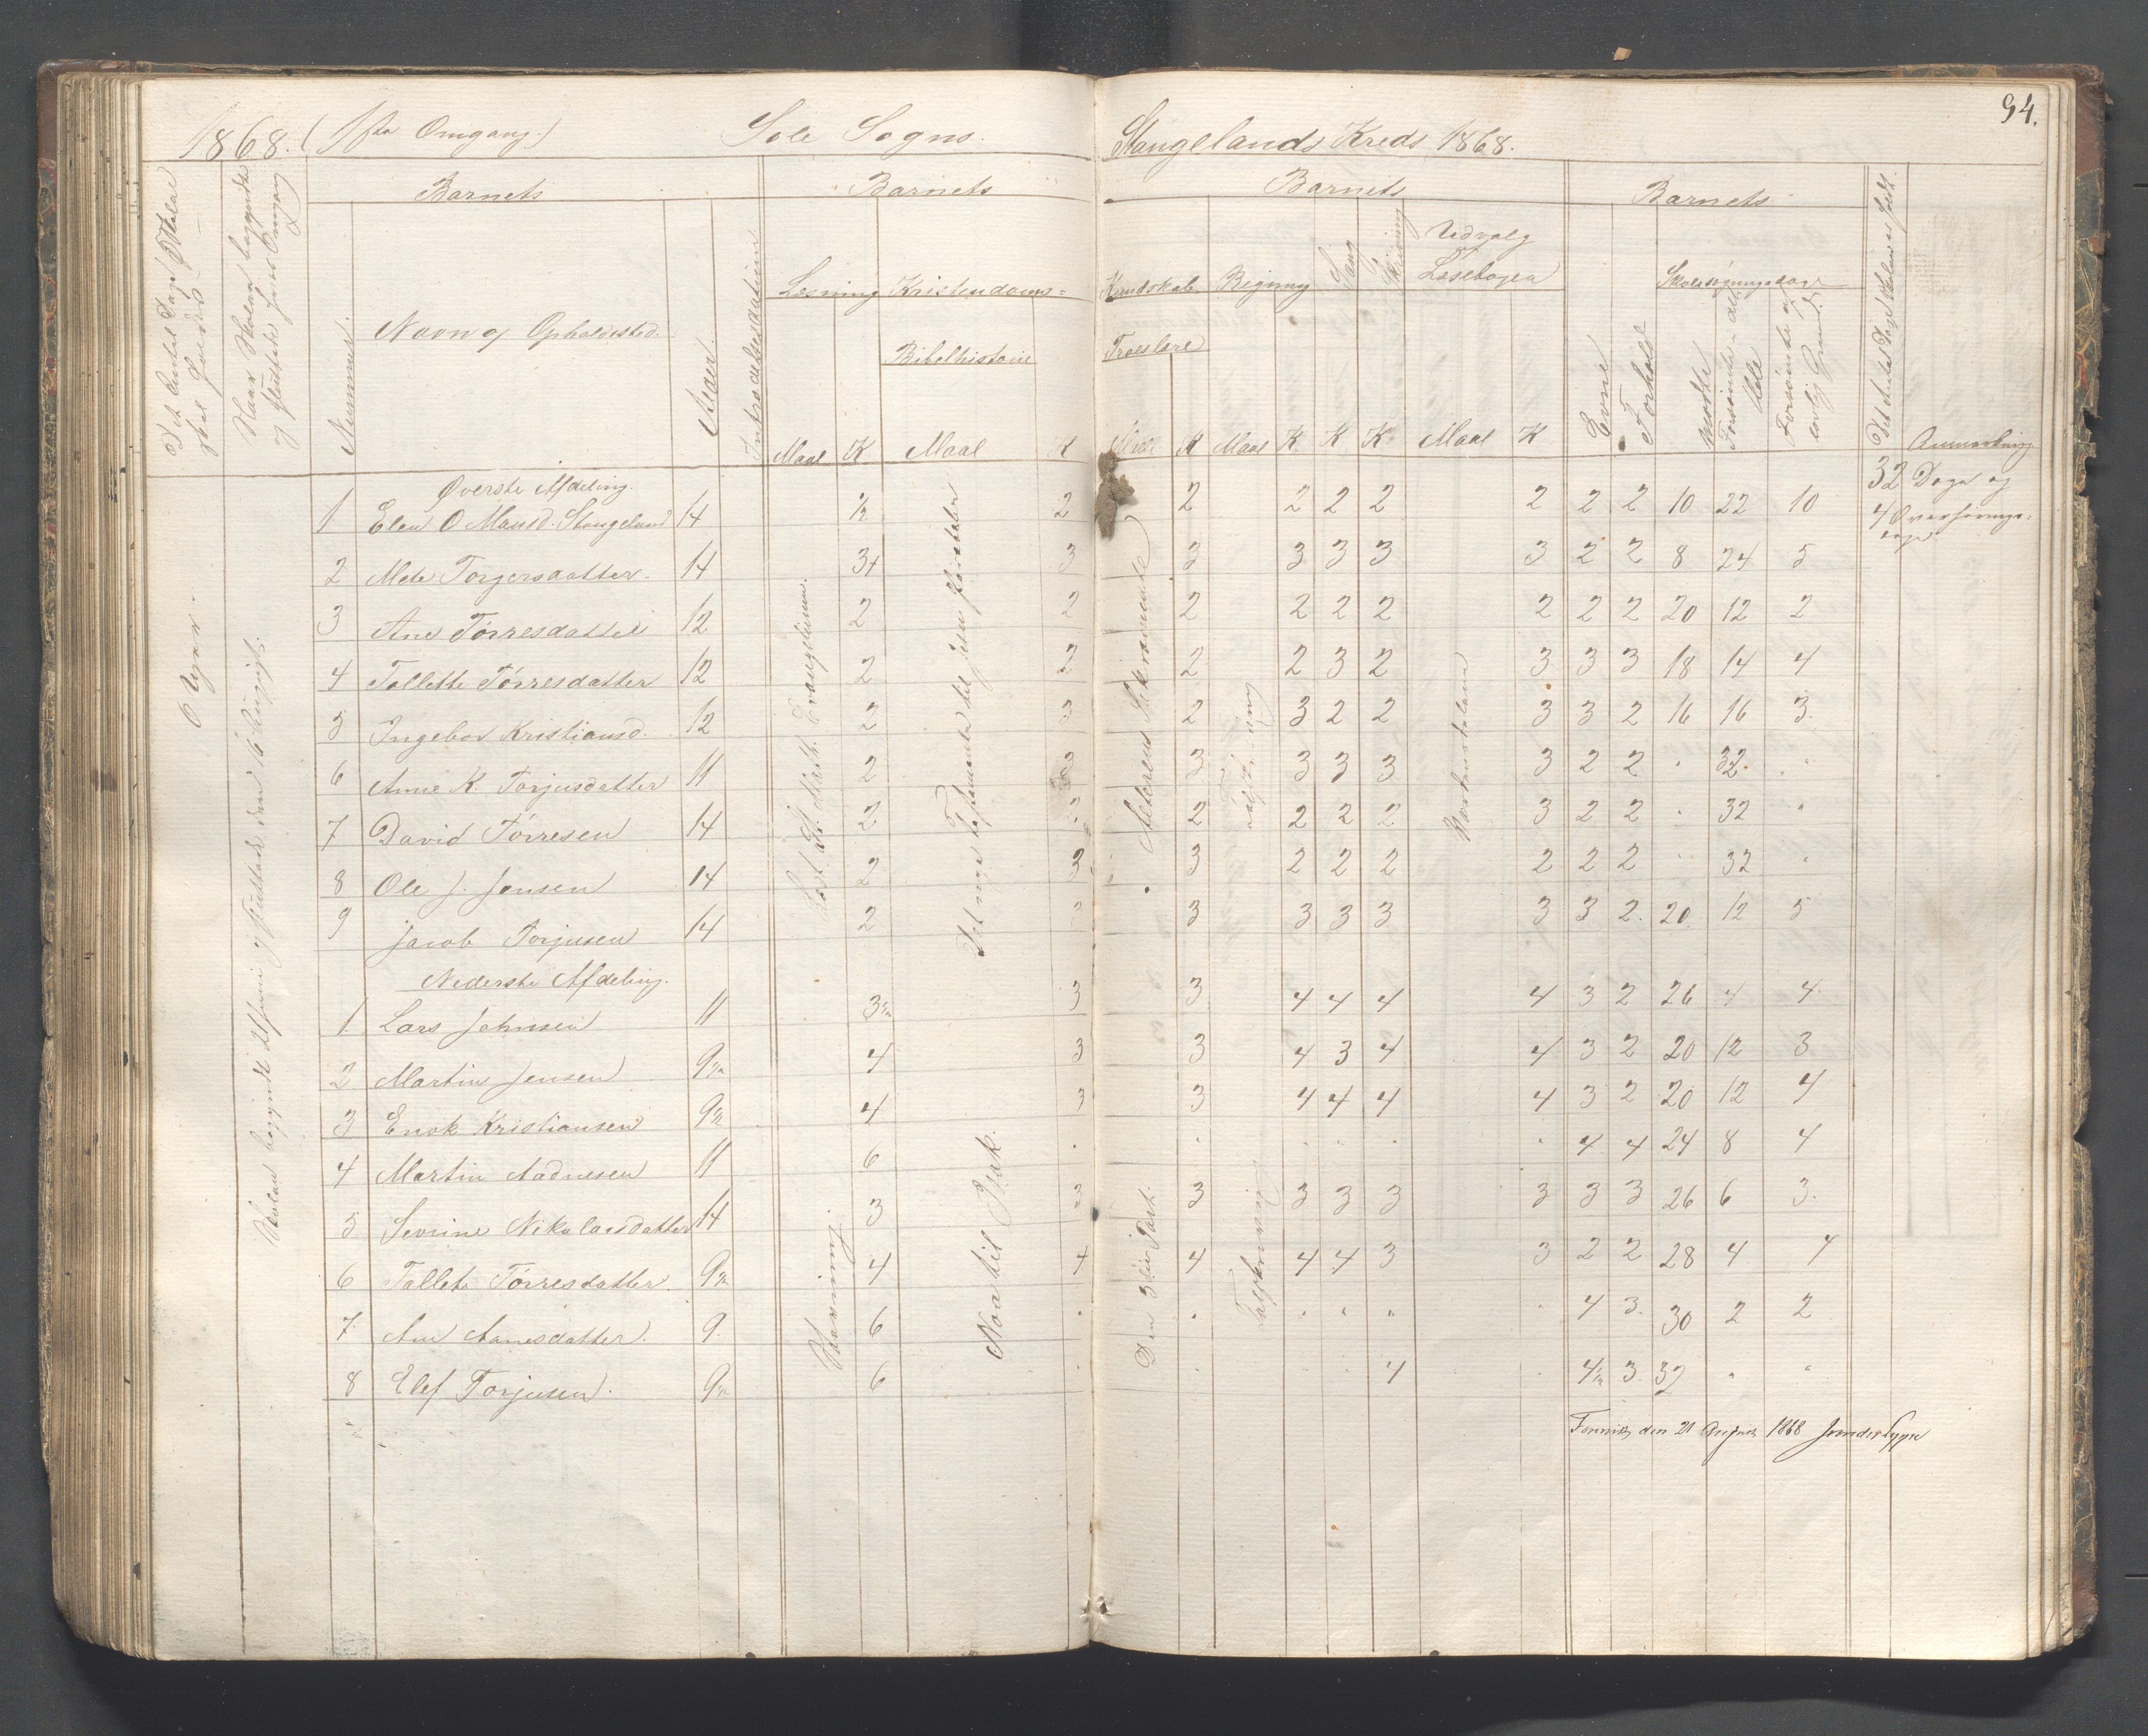 94.
1868. (1ste Omgang.) Sole Sogns Stangelands Kreds 1868.
Barnets Barnets Barnets Barnets
Det Antal Dage Skolen skal holdes
Naar Skolen begyndte og sluttede hver Omgang
Nummer.
Navn og Opholdssted.
Alder.
Læsning Kristendoms- Kundskab Regning Sang Skrivning Udvalg Læsebogen
Bibelhistorie Troeslære
Evne Forhold
Skolesøgningsdage
Mødte Forsømte af lovlig Grund
Maal K Maal K K Maal K K K Maal K
Anmærkning
6 Uger.
Skolen begyndt 21 Juni og sluttede den 16 August.
Øverste Afdeling.
1 Elen O Mausd. Stangeland 14 ½ 2 2 2 2 2 2 2 2 10 22 10
32 Dage og
4
2 Mete Torgersdatter. 14 3+ 3 3 3 3 3 3 2 2 8 24 5
3 Ane Tørresdatter 12 2 2 2 2 2 2 2 2 2 20 12 2
4 Tallette Tørresdatter 12 2 2 2 2 3 2 3 3 3 18 14 4
5 Ingebor Kristiansd. 12 2 3 2 3 2 2 3 3 2 16 16 3.
6 Anne K. Torjusdatter 11 2 3 3 3 3 3 3 2 2 " 32. "
7 David Tørresen 14 2 2 2 2 2 2 3 2 2 " 32 "
8 Ole J. Jensen 14 2 3 3 2 2 2 2 2 2 " 32 "
9 Jacob Torjusen 14 2 3 3 3 3 3 3 2. 20 12 5
Læst St. Math. Evangelium.
Det nye Testamente til Jesu Parabler
Alterens Sakramente
Nederste Afdeling.
1 Lars Johnsen 11 3½ 3 3 4 4 4 4 3 2 26 4 4
2 Martin Jensen 9½ 4 3 3 4 3 4 4 3 2 20 12 3
3 Enok Kristiansen 9½ 4 3 3 4 4 4 4 3 2 20 12 4
4 Martin Aadnesen 11 6 " " " " " " 4 4 24 8 4
5 Sevrine Nikolaisdatter 14 3 3 3 3 3 3 3 3 3 26 6 3.
6 Tallete Tørresdatter. 9½ 4 4 4 4 4 3 3 2 2 28 4 4
7 Ane Aanesdatter. 9. 6 " " " " " " 4 3. 30 2 2
8 Elef Torjusen. 9½ 6 " " " " 4 " 4½ 3. 32 " "
Stavning
Noa til Isak.
Den 3die Part.
den 21 August 1868